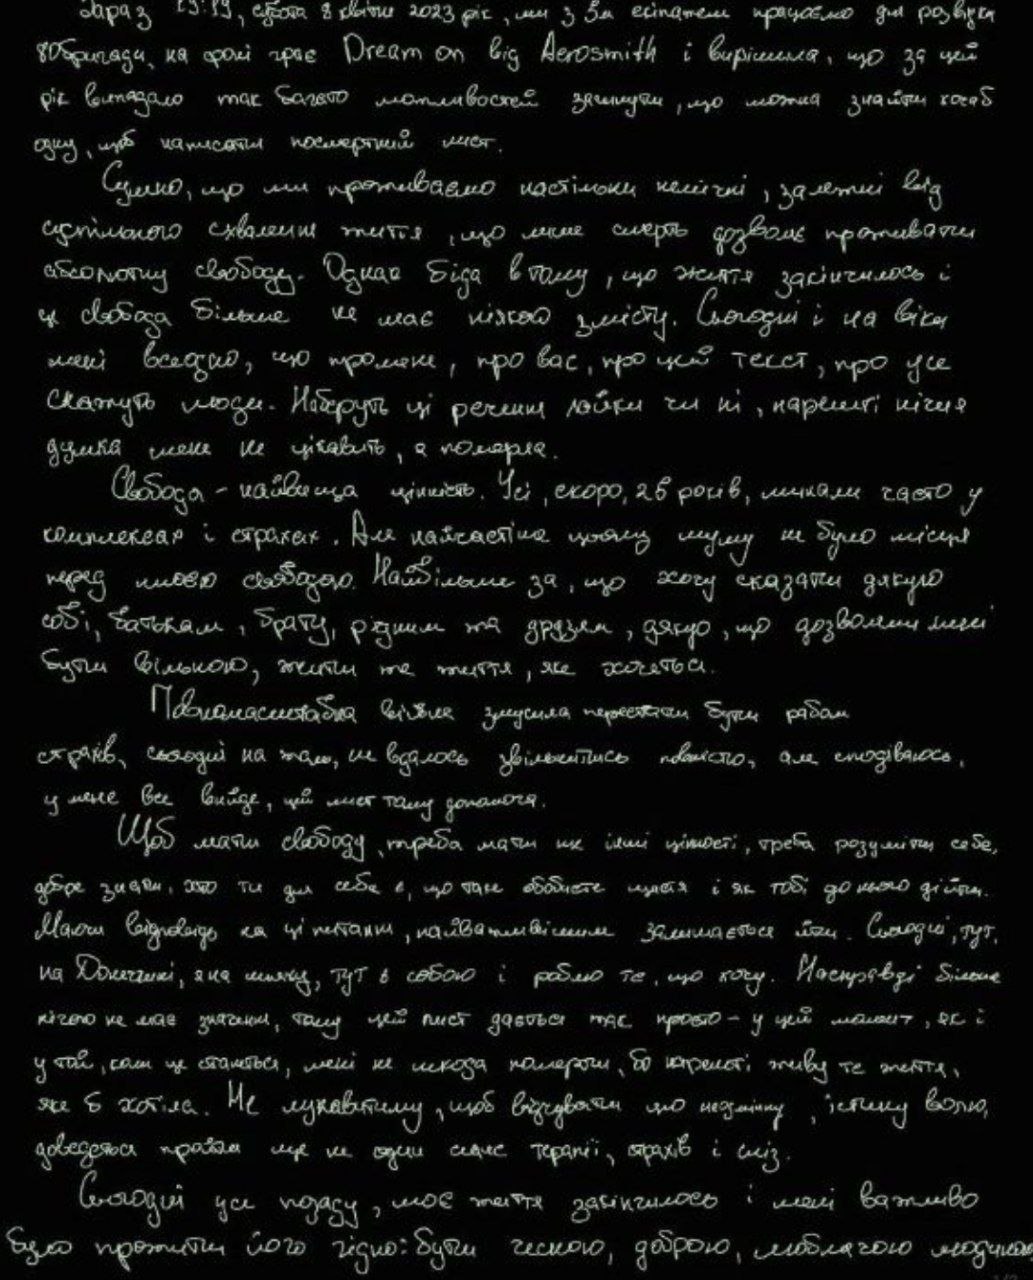 Зараз 19:19, субота 8 квітня 2023 рік, ми з 3м екіпажем працюємо для розвідки
80бригади, на фоні грає Dream on від Aerosmith і вирішила, що за цей
рік випадало так багато можливостей загинути, що можна знайти хоча б
одну, щоб написати посмертний лист.
Сумно, що ми проживаємо настільки нелічні, залежні від
суспільного схвалення життя, що лише смерть дозволяє проживати
абсолютну свободу. Однак біда в тому, що життя закінчилось і
ця свобода більше не має ніякого змісту. Сьогодні і на віки
мені всеодно, що про мене, про вас, про цей текст, про усе
скажуть люди. Наберуть ці речення лайки чи ні, нарешті нічия
думка мене не цікавить, я померла.
Свобода - найвища цінність. Усі, скоро, 25 років, минали часто у
комплексах і страхах. Але найчастіше цьому шуму не було місця
перед моєю свободою. Найбільше за, що хочу сказати дякую
собі, батькам, брату, рідним та друзям, дякую, що дозволяли мені
бути вільною, жити те життя, яке хочеться.
Повномасштабна війна змусила перестати бути рабом
страхів, сьогодні на жаль, не вдалось звільнитись повністю, але сподіваюсь,
у мене все вийде, цей лист тому допоможе.
Щоб мати свободу, треба мати ще інші цінності, треба розуміти себе,
добре знати, хто ти для себе є, що таке особисте щастя і як тобі до нього дійти.
Маючи відповідь на ці питання, найважливішим залишається йти. Сьогодні, тут,
на Донеччині, я на шляху, тут з собою і роблю те, що хочу. Насправді більше
нічого не має значення, тому цей лист дається так просто - у цей момент, як і
у той, коли це станеться, мені не шкода померти, бо нарешті живу те життя,
яке б хотіла. Не лукавитиму, щоб відчувати цю незмінну, істину волю,
доведеться пройти ще не один сеанс терапії, страхів і сліз.
Сьогодні усе позаду, моє життя закінчилось і мені важливо
було прожити його гідно: бути чесною, доброю, люблячою людиною